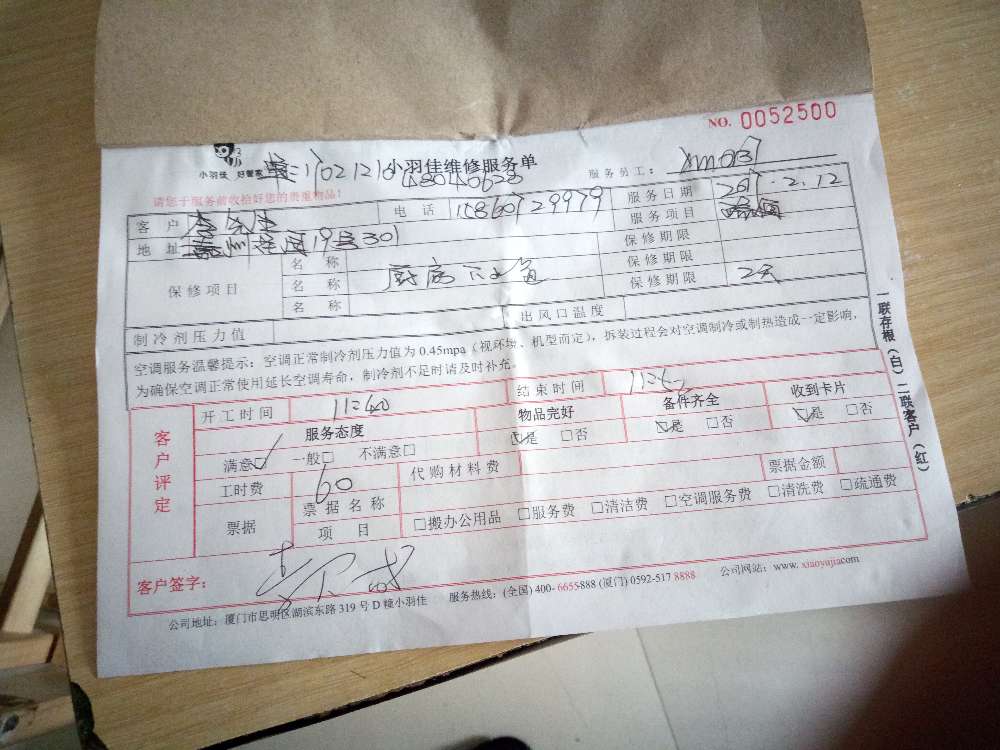 NO. 0052500
小羽佳 好管家
小羽佳维修服务单
服务员工：
请您于服务前收拾好您的贵重物品！
客户 李先生 电话 服务日期 2017.2.12
地址 19号301 服务项目
保修项目
名称 保修期限
名称 厨房下水道 保修期限
名称 保修期限 2天
制冷剂压力值 出风口温度
空调服务温馨提示：空调正常制冷剂压力值为 0.45mpa（视环境、机型而定），拆装过程会对空调制冷或制热造成一定影响，
为确保空调正常使用延长空调寿命，制冷剂不足时请及时补充。
客户评定
开工时间 11:40 结束时间
服务态度 物品完好 备件齐全 收到卡片
满意☑ 一般□ 不满意□ ☑是 □否 ☑是 □否 ☑是 □否
工时费 60 代购材料费 票据金额
票据 票据名称
项目 □搬办公用品 □服务费 □清洁费 □空调服务费 □清洗费 □疏通费
客户签字：
公司地址：厦门市思明区湖滨东路 319 号 D 幢小羽佳 服务热线：(全国) 400- 6655-888 (厦门) 0592-517 8888 公司网站：www. xiaoyujia.com
一联存根（白）二联客户（红）